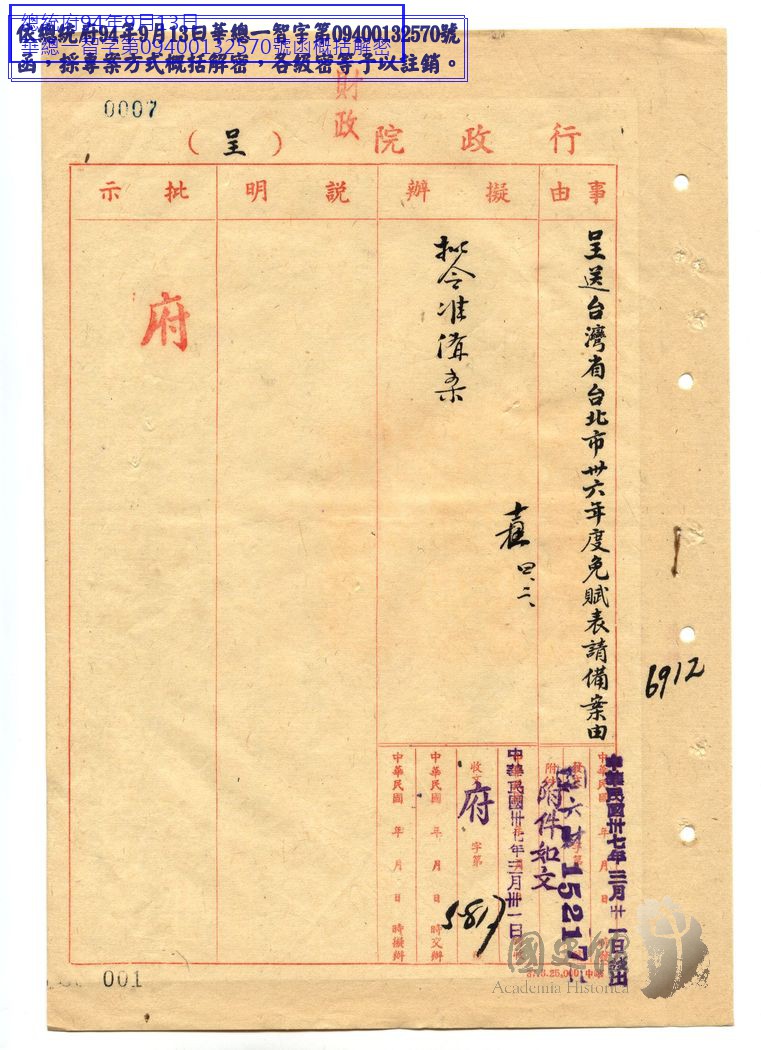 總統府94年9月13日
華總一智字第09400132570號函概括解密
依總統府94年9月13日華總一智字第09400132570號
函，採專案方式概括解密，各級密等予以註銷。
0007
財政
行政院（呈）
事由
擬辦
說明
批示
呈送台灣省台北市卅六年度免賦表請備案由
擬令准備案
四、二、
府
6912
中華民國卅七年三月卅一日發出
六財
15217
附件如文
中華民國卅七年三月卅一日
收文 府 字第
5817
中華民國 年 月 日 時交辦
中華民國 年 月 日 時擬辦
001
國史館
Academia Historica